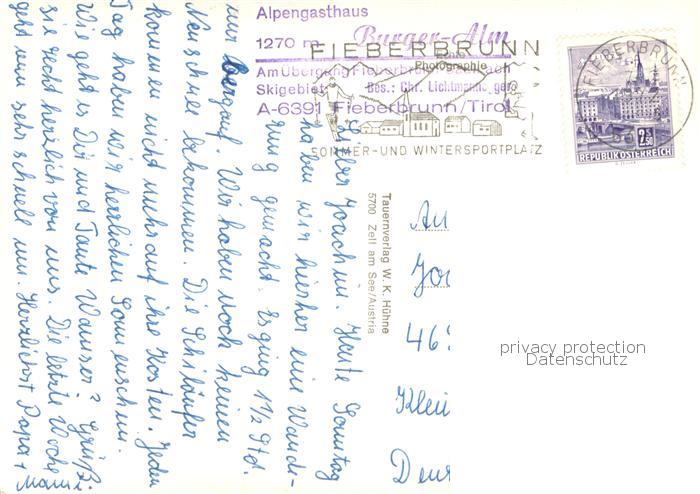 Alpengasthaus
Burger-Alm
1270 m
Echte
Photographie
Am Übergang Fieberbrunn
Skigebiet
Bes.: Chr. Lichtmannegger
A-6391 Fieberbrunn/Tirol
FIEBERBRUNN
SOMMER- UND WINTERSPORTPLATZ
FIEBERBRUNN
2.50
REPUBLIK ÖSTERREICH
Lieber Joachim. Heute Samstag
haben wir hierher eine Wande-
rung gemacht. Es ging 1 1/2 Std.
nur bergauf. Wir haben noch keinen
Neuschnee bekommen. Die Schiläufer
kommen nicht mehr auf ihre Kosten. Jeden
Tag haben wir herrlichen Sonnenschein.
Wie geht es Dir und Tante? Grüß
sie recht herzlich von uns. Die letzte Woche
geht nun sehr schnell um. Herzlichst Papa + Mami
Tauernverlag W. K. Hühne
5700 Zell am See/Austria
An
Jo
46
Klei
privacy protection
Datenschutz